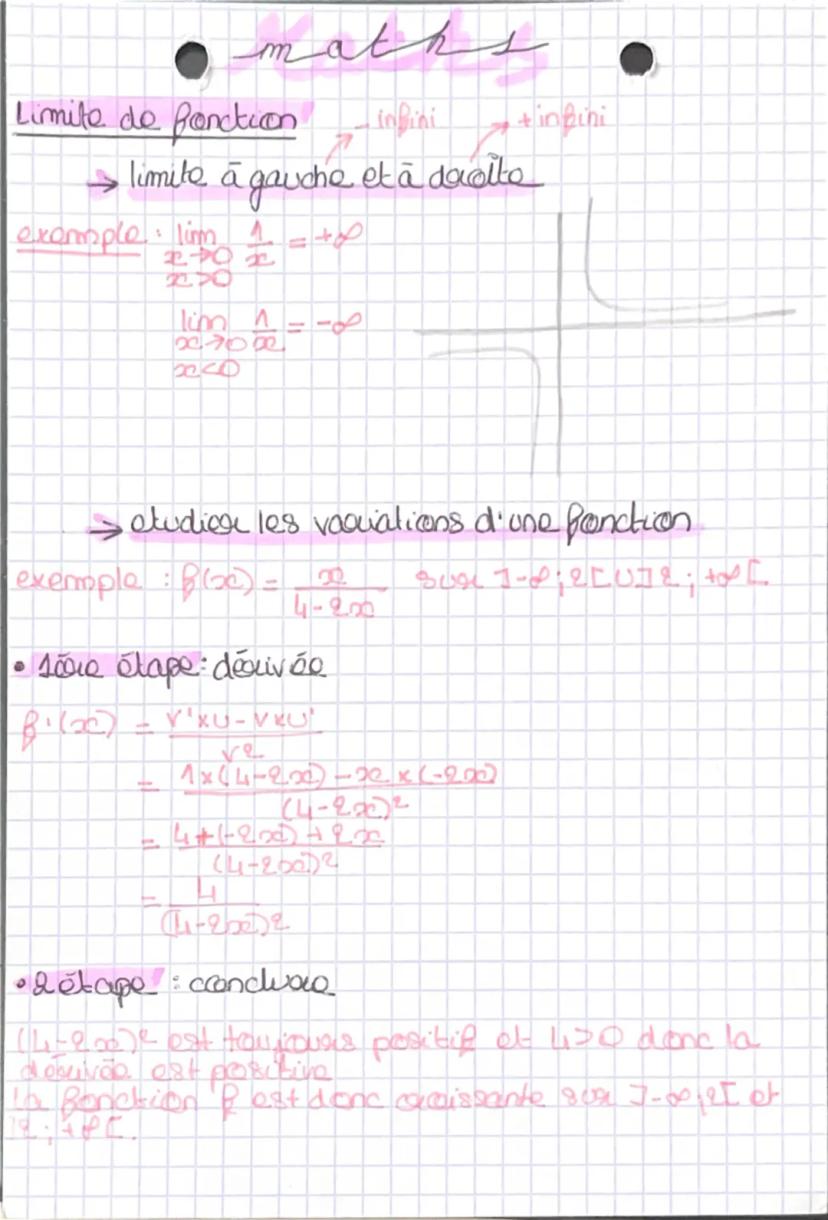 maths
Limite de fonction
- infini + infini
→ limite à gauche et à droite
exemple : lim 1/x = +∞
x→0
x>0
lim 1/x = -∞
x→0
x<0
→ etudier les variations d'une fonction
exemple : f(x) = x/(4-2x) sur ]-∞;2[U]2;+∞[
• 1ère étape : dérivée
f'(x) = (v'×u - v×u')/v2
= (1×(4-2x) - x×(-2x))/(4-2x)²
= (4+(-2x)+2x)/(4-2x)2
= 4/(4-2x)2
• 2 étape : conclure
(4-2x)² est toujours positif et 4>0 donc la
dérivée est positive
la fonction f est donc croissante sur ]-∞;2[ et
]2;+∞[.